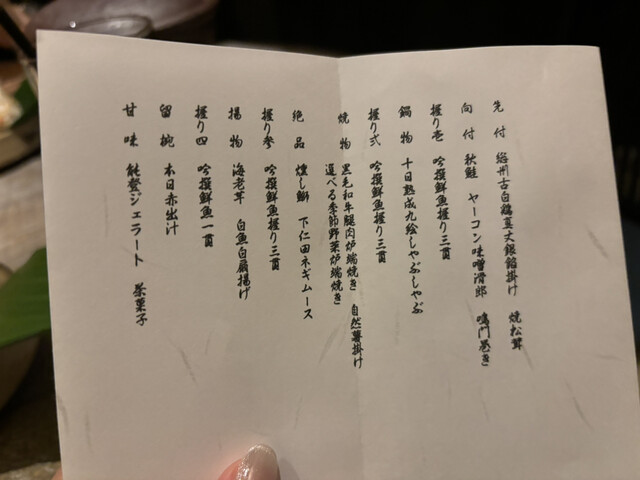 先付 
古白鶏真丈銀餡掛け 焼松茸
向付 秋鮭 ヤーコン味噌滑郎 鳴門巻き
握り壱 吟撰鮮魚握り三貫
鍋物 十日熟成九絵しゃぶしゃぶ
握り弐 吟撰鮮魚握り三貫
焼物 黒毛和牛腿肉炉端焼き 自然薯掛け
選べる季節野菜炉端焼き
絶品 燻し鰤 下仁田ネギムース
握り参 吟撰鮮魚握り三貫
揚物 海老芋 白魚白扇揚げ
握り四 吟撰鮮魚一貫
留椀 本日赤出汁
甘味 能登ジェラート 茶菓子